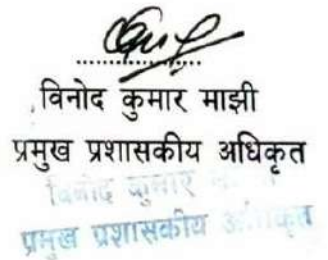 विनोद कुमार माझी
प्रमुख प्रशासकीय अधिकृत
विनोद कुमार
प्रमुख प्रशासकीय अधिकृत